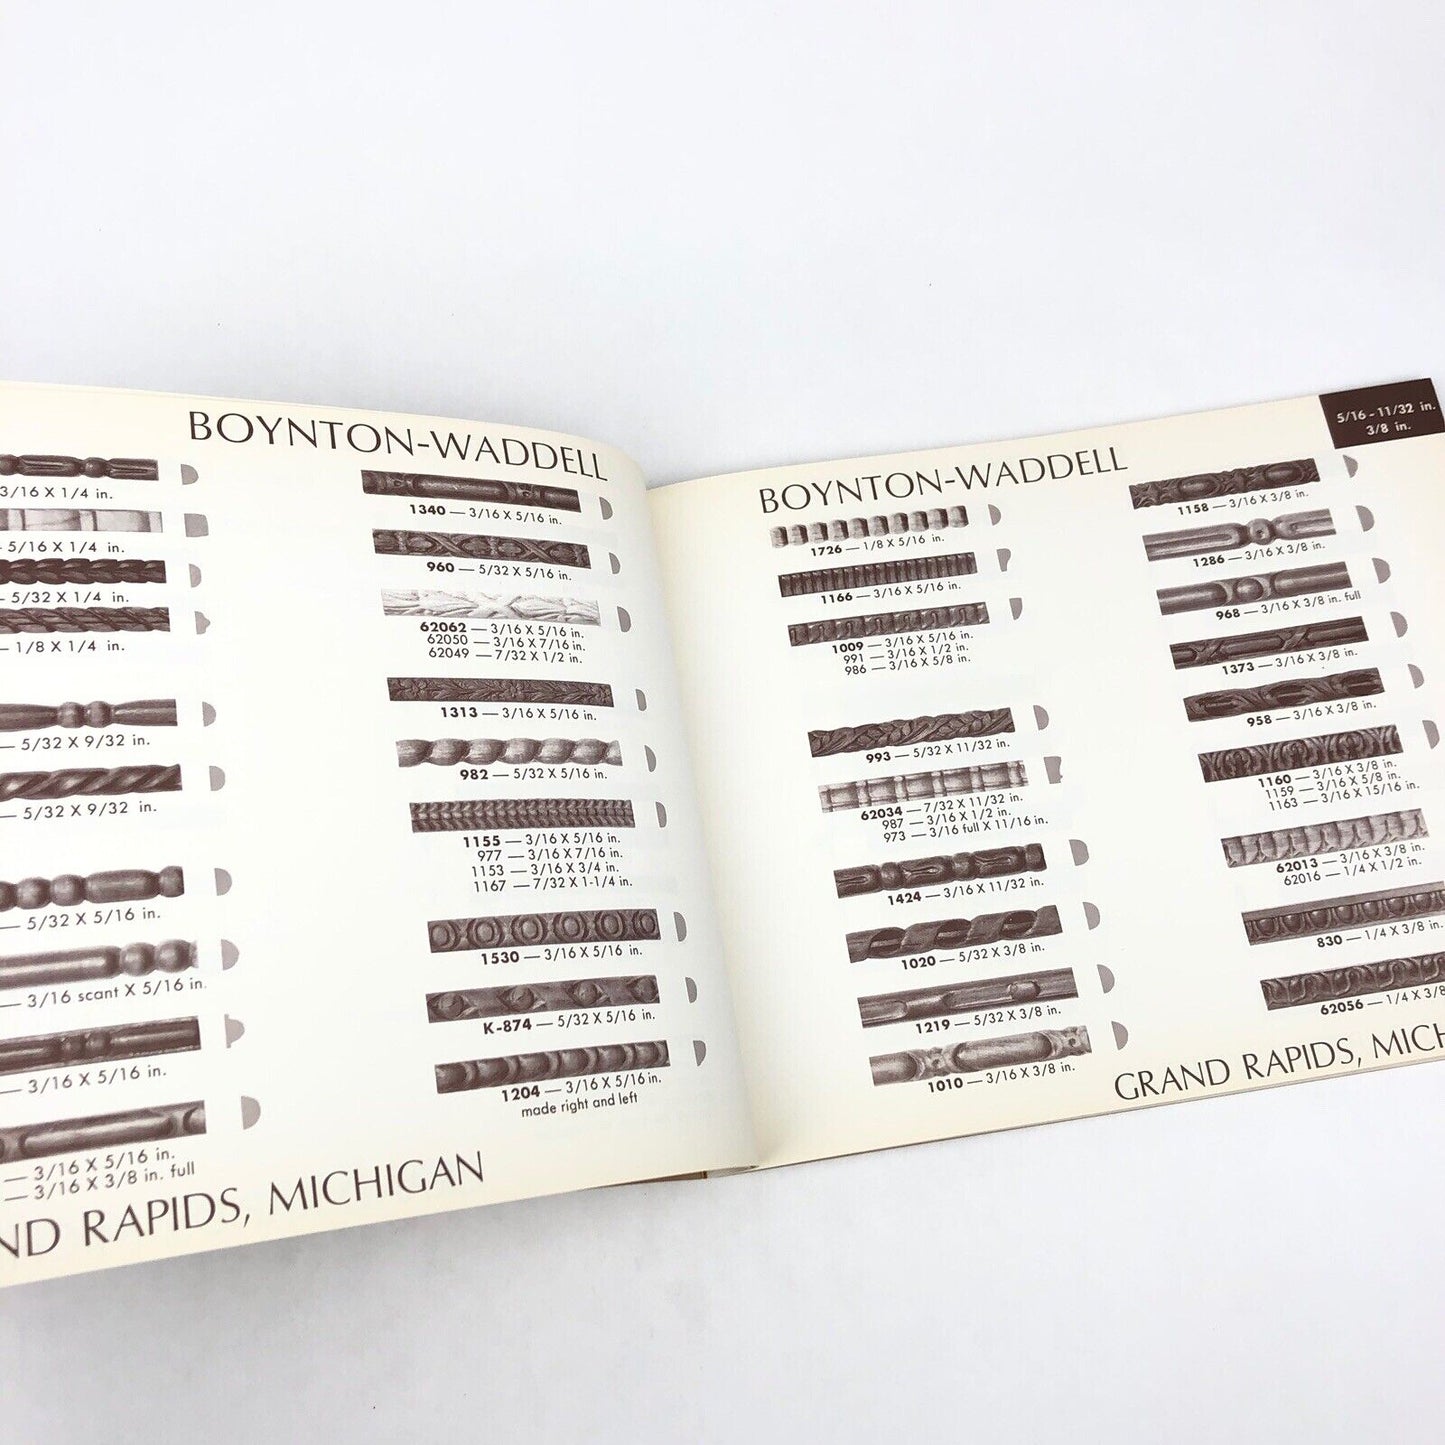 BOYNTON-WADDELL
3/16 X 1/4 in.
5/16 X 1/4 in.
— 5/32 X 1/4 in.
— 1/8 X 1/4 in.
— 5/32 X 9/32 in.
— 5/32 X 9/32 in.
— 5/32 X 5/16 in.
— 3/16 scant X 5/16 in.
— 3/16 X 5/16 in.
— 3/16 X 5/16 in.
— 3/16 X 3/8 in. full
1340 — 3/16 X 5/16 in.
960 — 5/32 X 5/16 in.
62062 — 3/16 X 5/16 in.
62050 — 3/16 X 7/16 in.
62049 — 7/32 X 1/2 in.
1313 — 3/16 X 5/16 in.
982 — 5/32 X 5/16 in.
1155 — 3/16 X 5/16 in.
977 — 3/16 X 7/16 in.
1153 — 3/16 X 3/4 in.
1167 — 7/32 X 1-1/4 in.
1530 — 3/16 X 5/16 in.
K-874 — 5/32 X 5/16 in.
1204 — 3/16 X 5/16 in.
made right and left
ND RAPIDS, MICHIGAN
5/16 - 11/32 in.
3/8 in.
BOYNTON-WADDELL
1726 — 1/8 X 5/16 in.
1166 — 3/16 X 5/16 in.
1009 — 3/16 X 5/16 in.
991 — 3/16 X 1/2 in.
986 — 3/16 X 5/8 in.
993 — 5/32 X 11/32 in.
62034 — 7/32 X 11/32 in.
987 — 3/16 X 1/2 in.
973 — 3/16 full X 11/16 in.
1424 — 3/16 X 11/32 in.
1020 — 5/32 X 3/8 in.
1219 — 5/32 X 3/8 in.
1010 — 3/16 X 3/8 in.
1158 — 3/16 X 3/8 in.
1286 — 3/16 X 3/8 in.
968 — 3/16 X 3/8 in. full
1373 — 3/16 X 3/8 in.
958 — 3/16 X 3/8 in.
1160 — 3/16 X 3/8 in.
1159 — 3/16 X 5/8 in.
1163 — 3/16 X 15/16 in.
62013 — 3/16 X 3/8 in.
62016 — 1/4 X 1/2 in.
830 — 1/4 X 3/8 in.
62056 — 1/4 X 3/8
GRAND RAPIDS, MICH